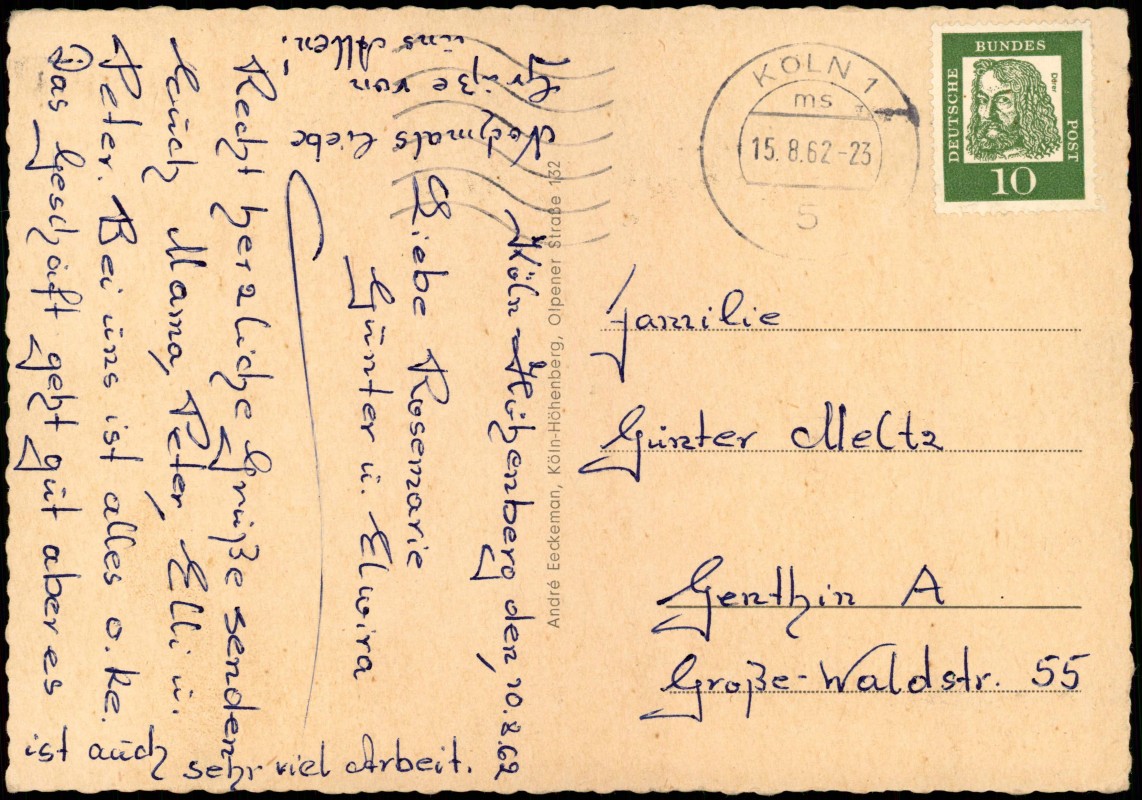 Köln-Höhenberg den, 10.8.62
Liebe Rosemarie
Günter u. Elvira
Recht herzliche Grüße senden
Euch Mama, Peter, Elli u.
Peter. Bei uns ist alles o.ke.
Das Geschäft geht gut aber es
ist auch sehr viel Arbeit.
Nochmals liebe
Grüße von
uns Allen!
André Eeckeman, Köln-Höhenberg, Olpener Straße 132
KÖLN 1
ms
15.8.62-23
5
DEUTSCHE
BUNDES
POST
Dürer
10
Familie
Günter Meltz
Genthin A
Große-Waldstr. 55